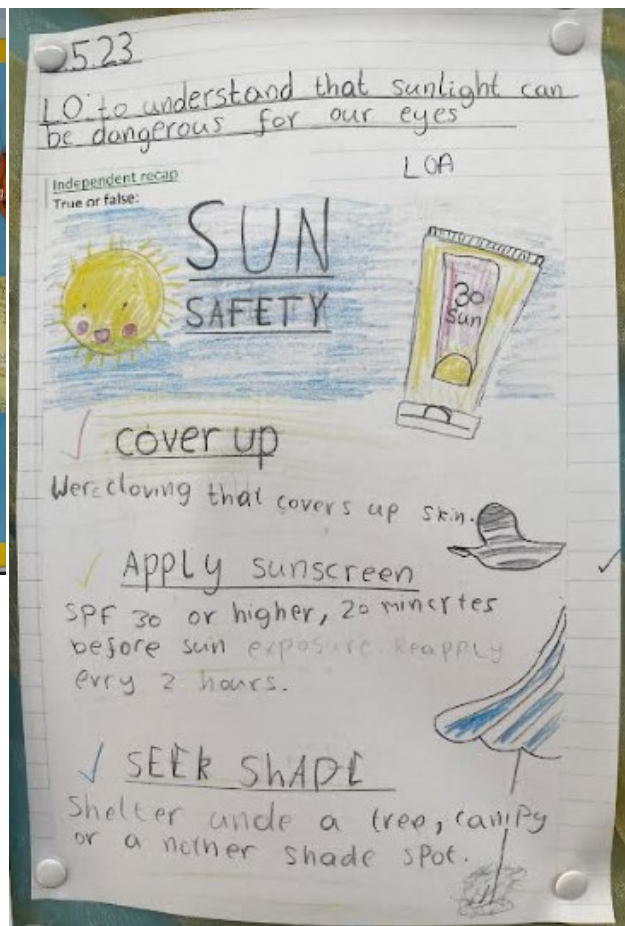 .5.23
LO: to understand that sunlight can
be dangerous for our eyes
LOA
Independent recap
True or false:
SUN
SAFETY
30
Sun
cover up
Were cloving that covers up skin.
Apply sunscreen
SPF 30 or higher, 20 mincrtes
before sun exposure. Reapply
evry 2 hours.
SEEk ShADE
Shelter unde a tree, canipy
or a nother shade spot.